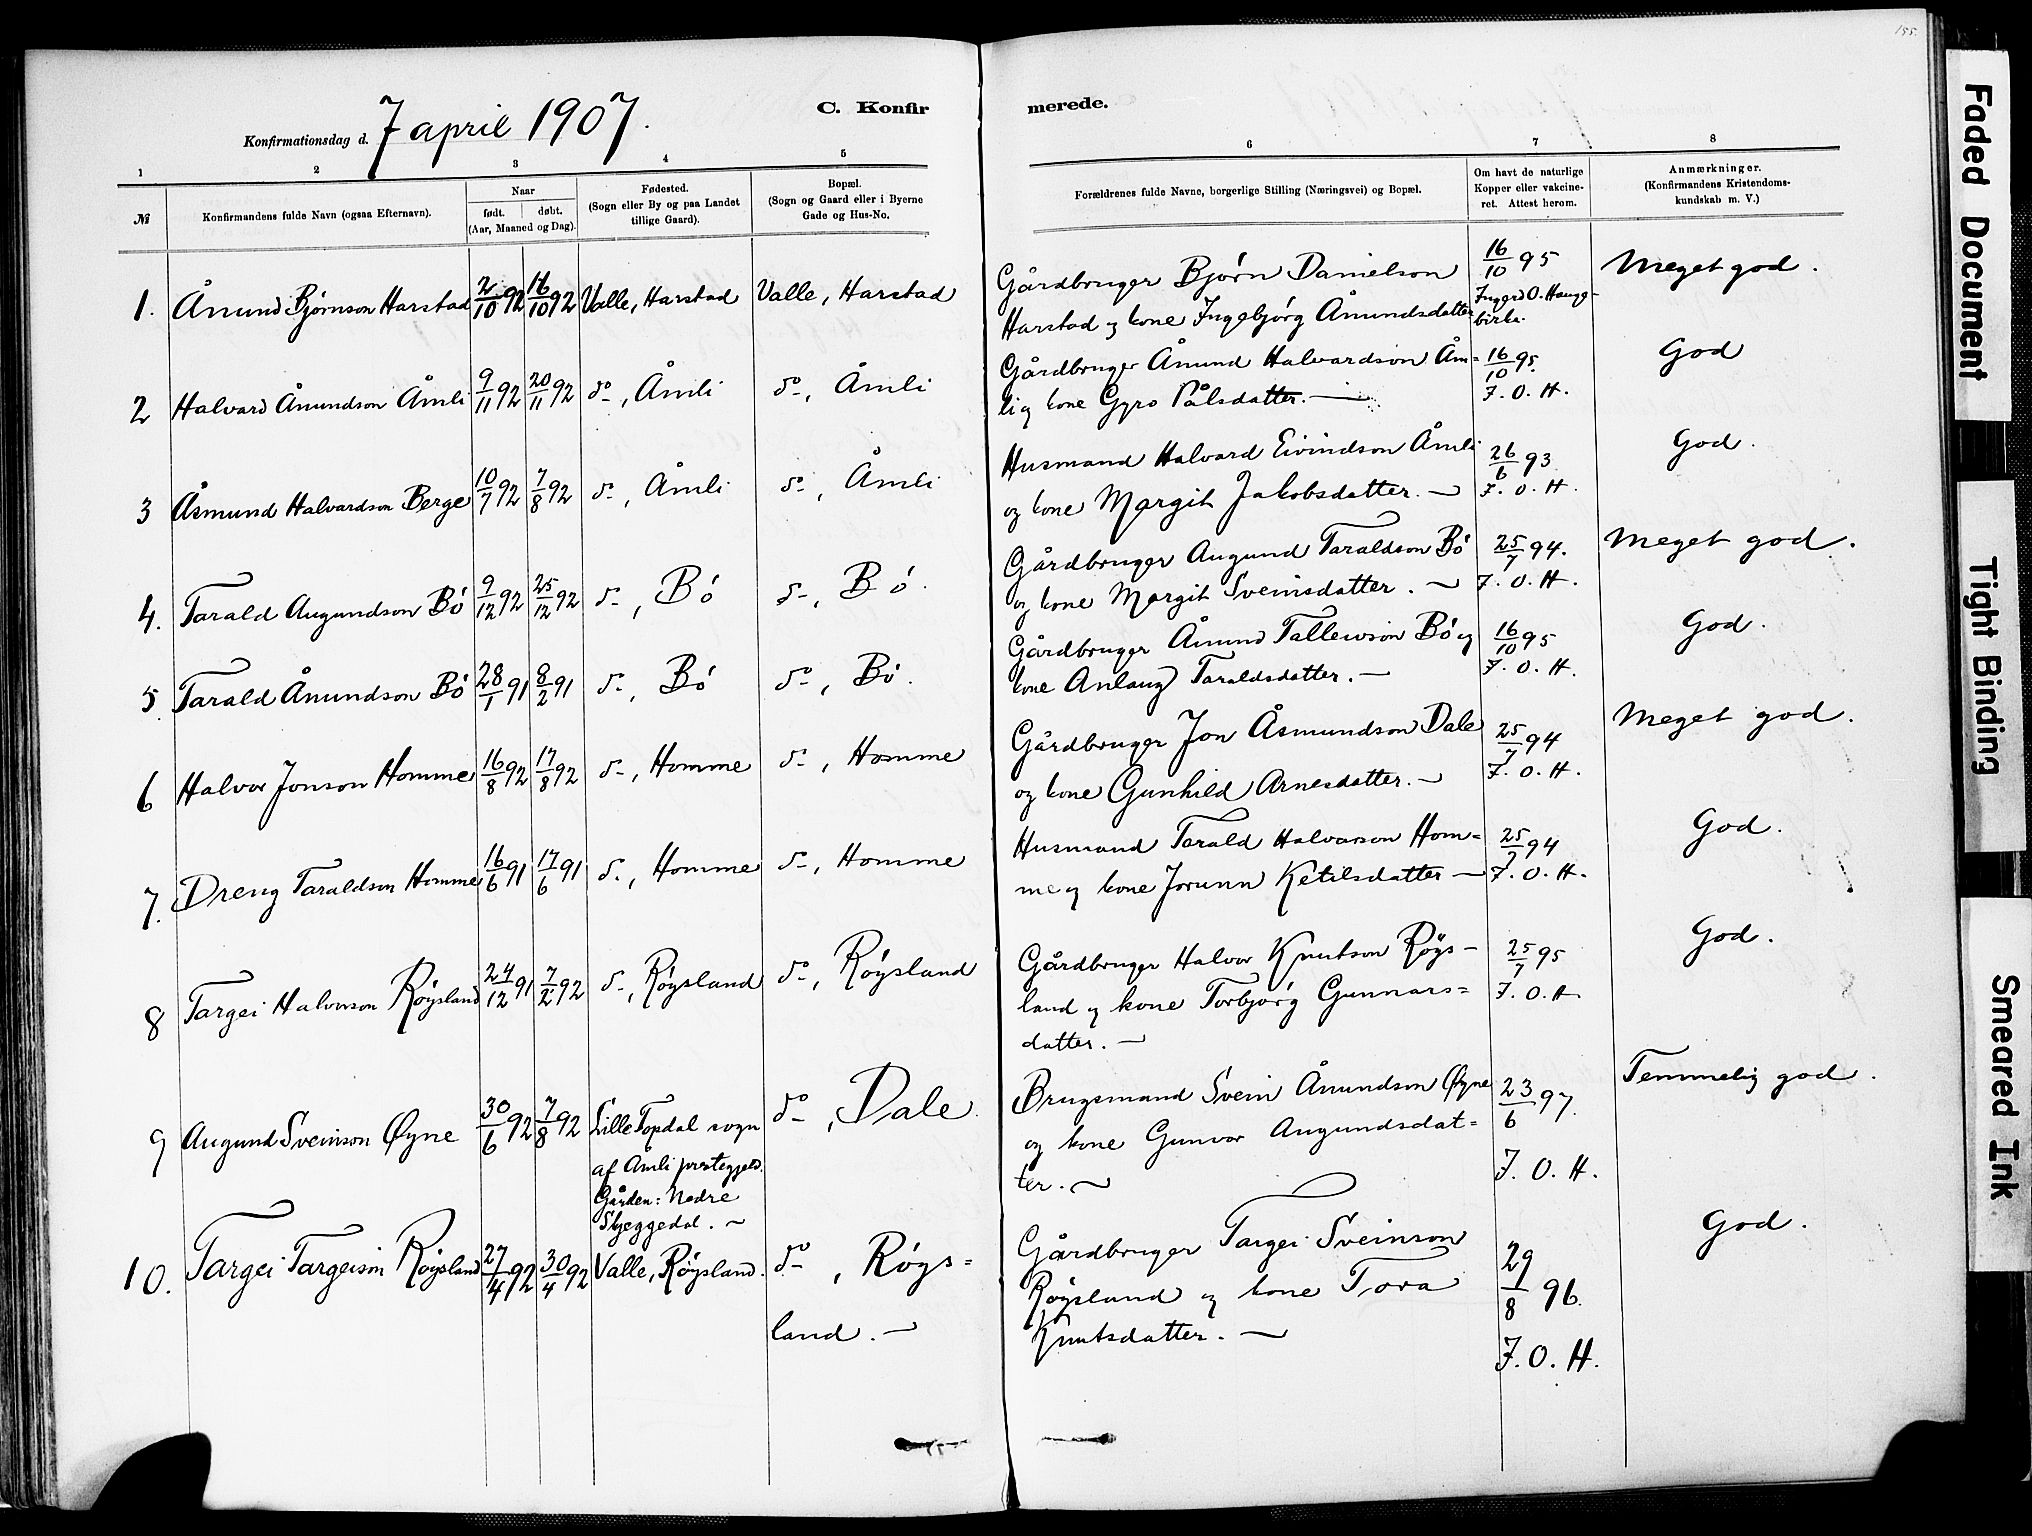 155.
Konfirmationsdag d. 7 april 1907.
C. Konfirmerede.
1 2 3 4 5 6 7 8
№
Konfirmandens fulde Navn (ogsaa Efternavn).
Naar
født. døbt.
(Aar, Maaned og Dag).
Fødested.
(Sogn eller By og paa Landet
tillige Gaard).
Bopæl.
(Sogn og Gaard eller i Byerne
Gade og Hus-No.
Forældrenes fulde Navne, borgerlige Stilling (Næringsvei) og Bopæl.
Om havt de naturlige
Kopper eller vakcine-
ret. Attest herom.
Anmærkninger.
(Konfirmandens Kristendoms-
kundskab m. V.)
1. Ånund Bjørnson Harstad 2/10 92 16/10 92 Valle, Harstad Valle, Harstad
Gårdbruger Bjørn Danielson 16/10 95 Meget god.
Harstad og kone Ingebjørg Ånundsdatter Ingerd O. Haug-
birke.
2 Halvard Ånundson Åmli 9/11 92 20/11 92 do, Åmli do, Åmli
Gårdbruger Ånund Halvardson Åm= 16/10 95. God
li og kone Gyro Pålsdatter. — I. O. H.
3 Åsmund Halvardson Berge 10/7 92 7/8 92 do, Åmli do, Åmli
Husmand Halvard Eivindson Åmli 26/6 93 God.
og kone Margit Jakobsdatter. — I. O. H.
4. Tarald Augundson Bö 9/12 92 25/12 92 do, Bö do, Bö.
Gårdbruger Augund Taraldson Bö 25/7 94. Meget god.
og kone Margit Sveinsdatter. — I. O. H.
5. Tarald Ånundson Bö 28/1 91 8/2 91 do, Bö do, Bö.
Gårdbruger Ånund Tallewson Bö og 16/10 95 God.
kone Anlaug Taraldsdatter. — I. O. H.
6 Halvor Jonson Homme 16/8 92 17/8 92 do, Homme do, Homme
Gårdbruger Jon Åsmundson Dale 25/7 94 Meget god.
og kone Gunhild Arnesdatter. — I. O. H.
7. Dreng Taraldson Homme 16/6 91 17/6 91 do, Homme do, Homme
Husmand Tarald Halvorson Hom= 25/7 94 God.
me og kone Jorunn Ketilsdatter — I. O. H.
8 Targei Halvorson Röysland 24/12 91 7/2 92 do, Röysland do, Röysland
Gårdbruger Halvor Knutson Röys- 25/7 95 God.
land og kone Torbjörg Gunnars= I. O. H
datter. —
9 Augund Sveinson Øyne 30/6 92 7/8 92 Lille Topdal sogn do, Dale.
af Åmli prestegjeld.
Gården: Nedre
Skjeggedal. —
Brugsmand Svein Ånundson Øyne 23/6 97. Temmelig god.
og kone Gunvor Augundsdat=
ter. — I. O. H.
10. Targei Targeison Röysland 27/4 92 30/4 92 Valle, Röysland. do, Röys=
land. —
Gårdbruger Targei Sveinson 29/8 96. God.
Röysland og kone Tora
Knutsdatter. — I. O. H.
Faded Document
Tight Binding
Smeared Ink